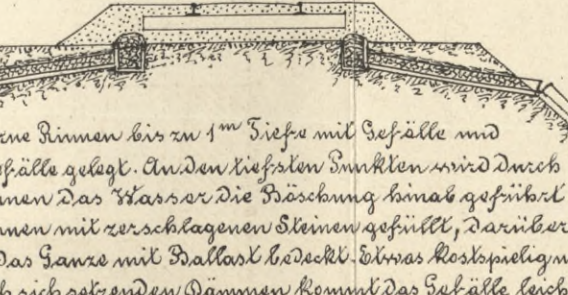 rne Rinnen bis zu 1m Tiefe mit Gefälle und
efälle gelegt. An den tiefsten Punkten wird durch
nnen das Wasser die Böschung hinab geführt
nnen mit zerschlagenen Steinen gefüllt, darüber
Das Ganze mit Ballast bedeckt. Etwas kostspielig
sich setzenden Dämmen kommt das Gefälle leich